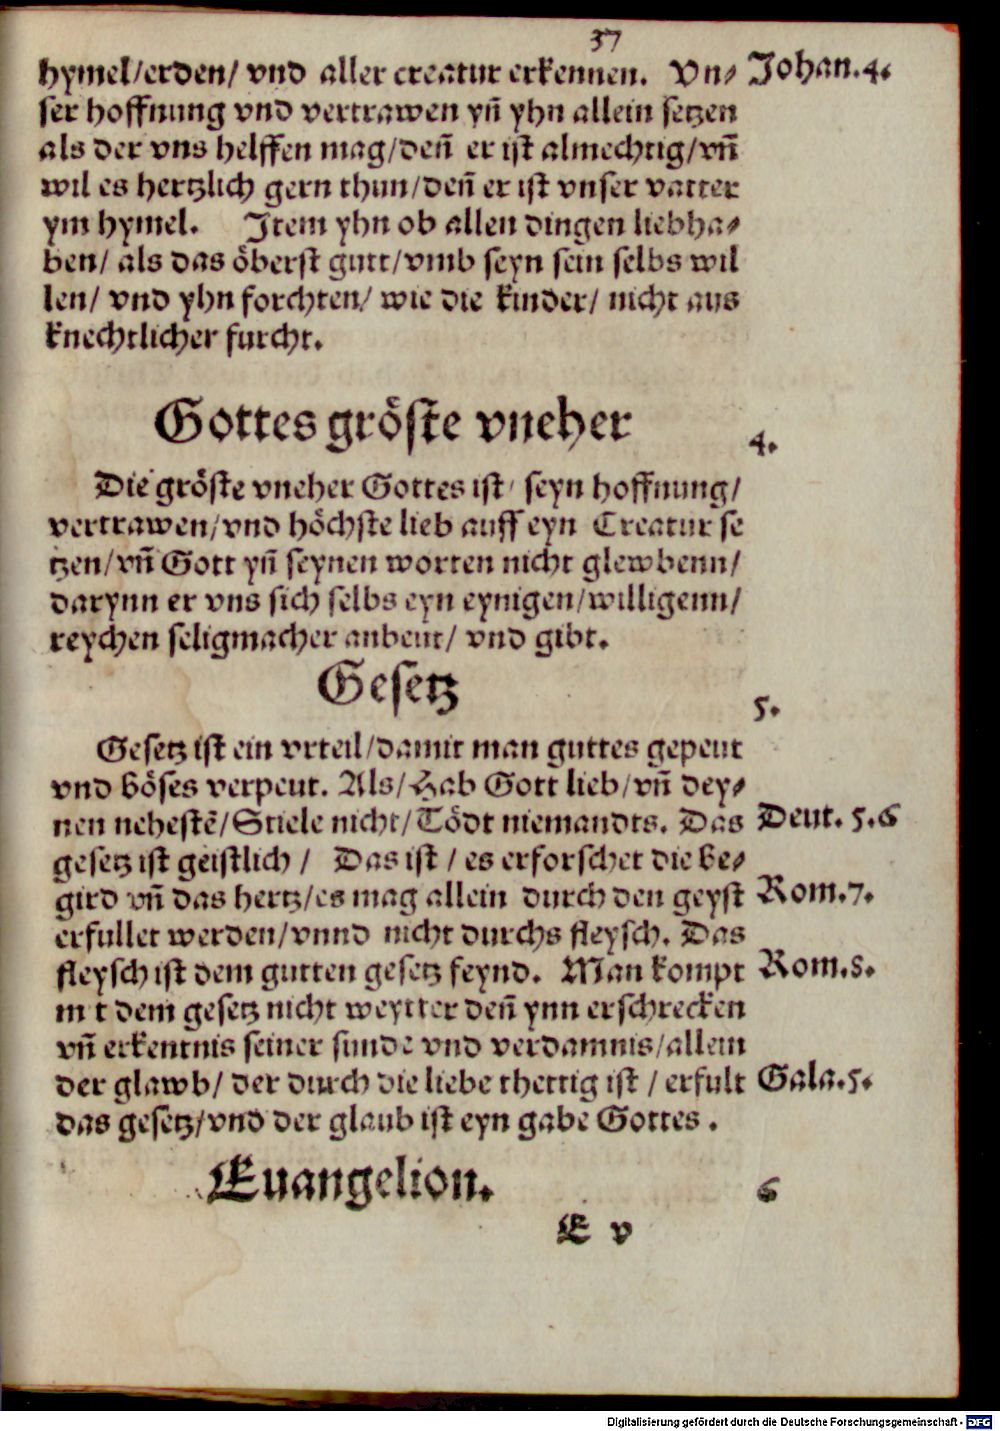 37
hymel/erden/ vnd aller creatur erkennen. Vn⸗ Johan.4.
ser hoffnung vnd vertrawen yn̄ yhn allein setzen
als der vns helffen mag/den̄ er ist almechtig/vn̄
wil es hertzlich gern thun/den̄ er ist vnser vatter
ym hymel. Item yhn ob allen dingen liebha⸗
ben/ als das öberst gutt/vmb seyn sein selbs wil
len/ vnd yhn forchten/ wie die kinder/ nicht aus
knechtlicher furcht.
Gottes gröste vneher
4.
Die gröste vneher Gottes ist/ seyn hoffnung/
vertrawen/vnd höchste lieb auff eyn Creatur se
tzen/vn̄ Gott yn̄ seynen worten nicht glewbenn/
darynn er vns sich selbs eyn eynigen/willigenn/
reychen seligmacher anbeut/ vnd gibt.
Gesetz
5.
Gesetz ist ein vrteil/damit man guttes gepeut
vnd böses verpeut. Als/Hab Gott lieb/vn̄ dey⸗
nen nehestē/Stiele nicht/Tödt niemandts. Das Deut. 5.6
gesetz ist geistlich/ Das ist/es erforschet die be⸗
gird vn̄ das hertz/es mag allein durch den geyst Rom.7.
erfullet werden/vnnd nicht durchs fleysch. Das
fleysch ist dem gutten gesetz feynd. Man kompt Rom.8.
m t dem gesetz nicht weytter den̄ ynn erschrecken
vn̄ erkentnis seiner sunde vnd verdamnis/allein
der glawb/ der durch die liebe thettig ist/erfult Gala.5.
das gesetz/vnd der glaub ist eyn gabe Gottes.
Euangelion. 6
E v
Digitalisierung gefördert durch die Deutsche Forschungsgemeinschaft - DFG